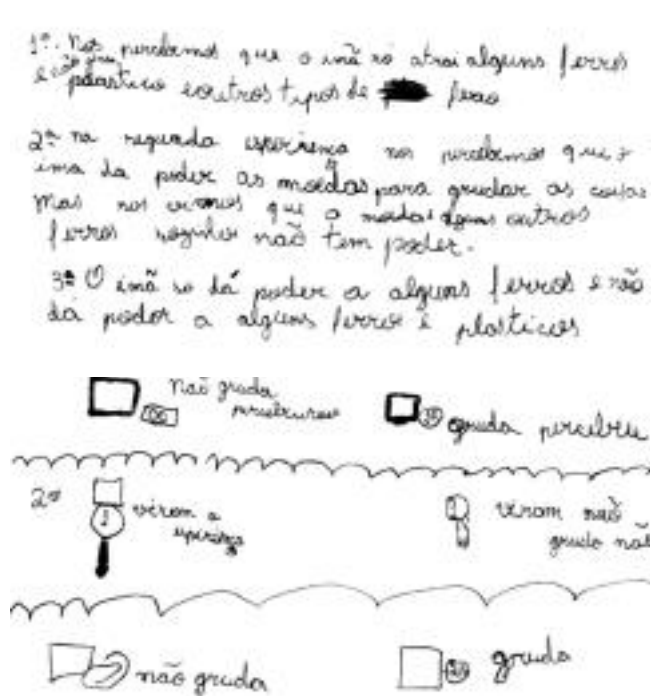 1º. Nos percebemos que o imã só atrai alguns ferros
e não atrai plástico e outros tipos de ferro
2ª na segunda esperiencia nos percebemos que o
ima da poder as moedas para grudar as coisas
mas nos vimos que a moedas alguns outros
ferros sozinhos não tem poder.
3ª O imã so dá poder a alguns ferros e não
dá poder a alguns ferros e plasticos
não gruda
gruda percebeu
2º
viram a
viram não
não gruda
gruda